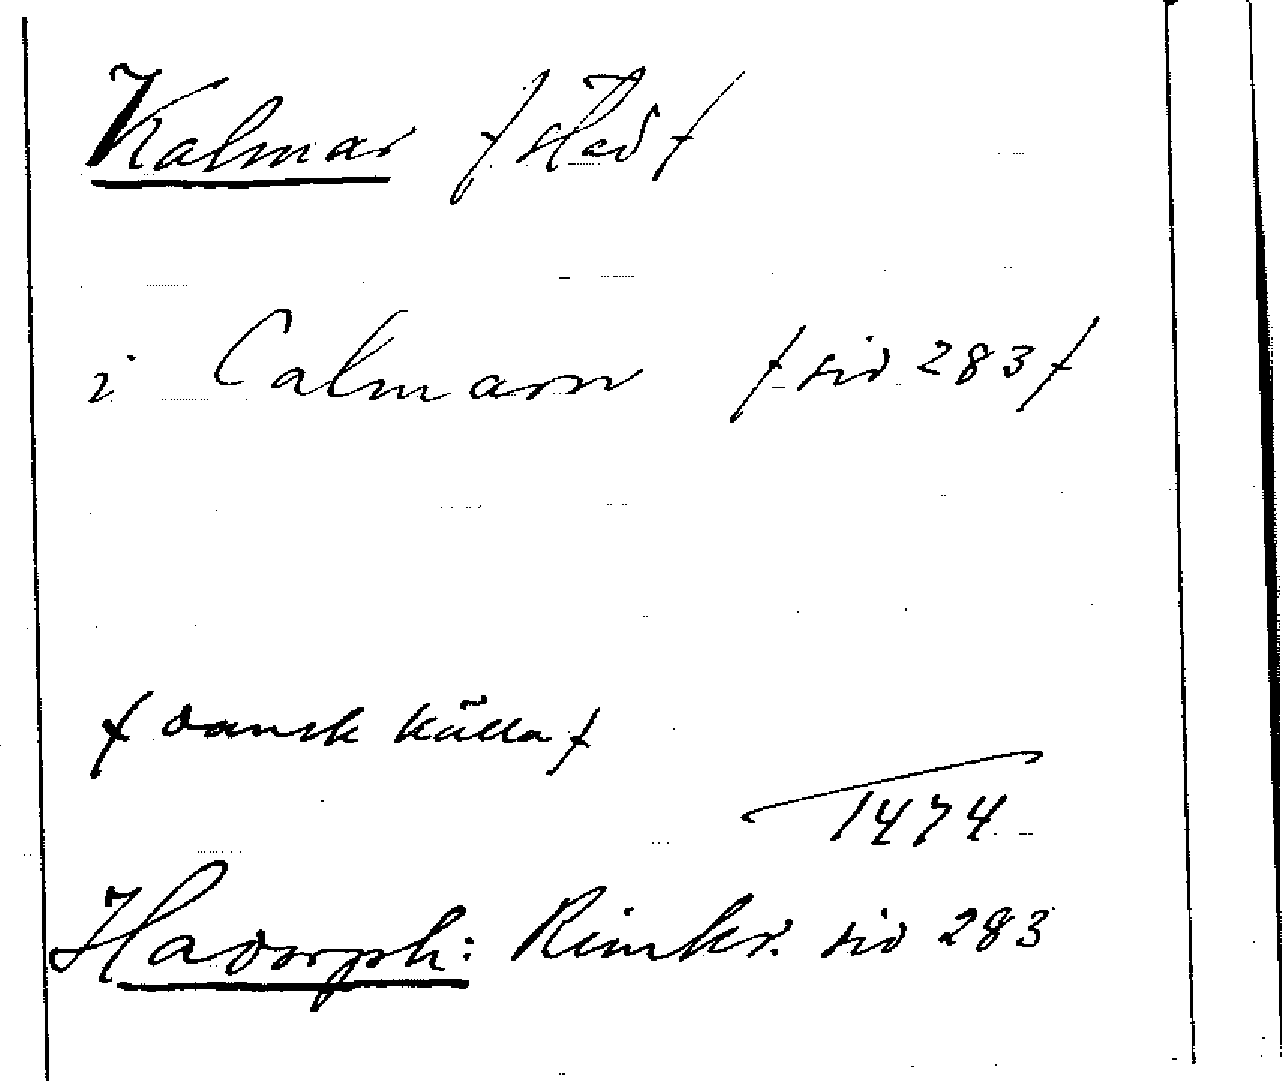 Kalmar /sted/
i Calmarn /sid 283/
/dansk källa/
1474
Hadorph: Rimkr. sid 283